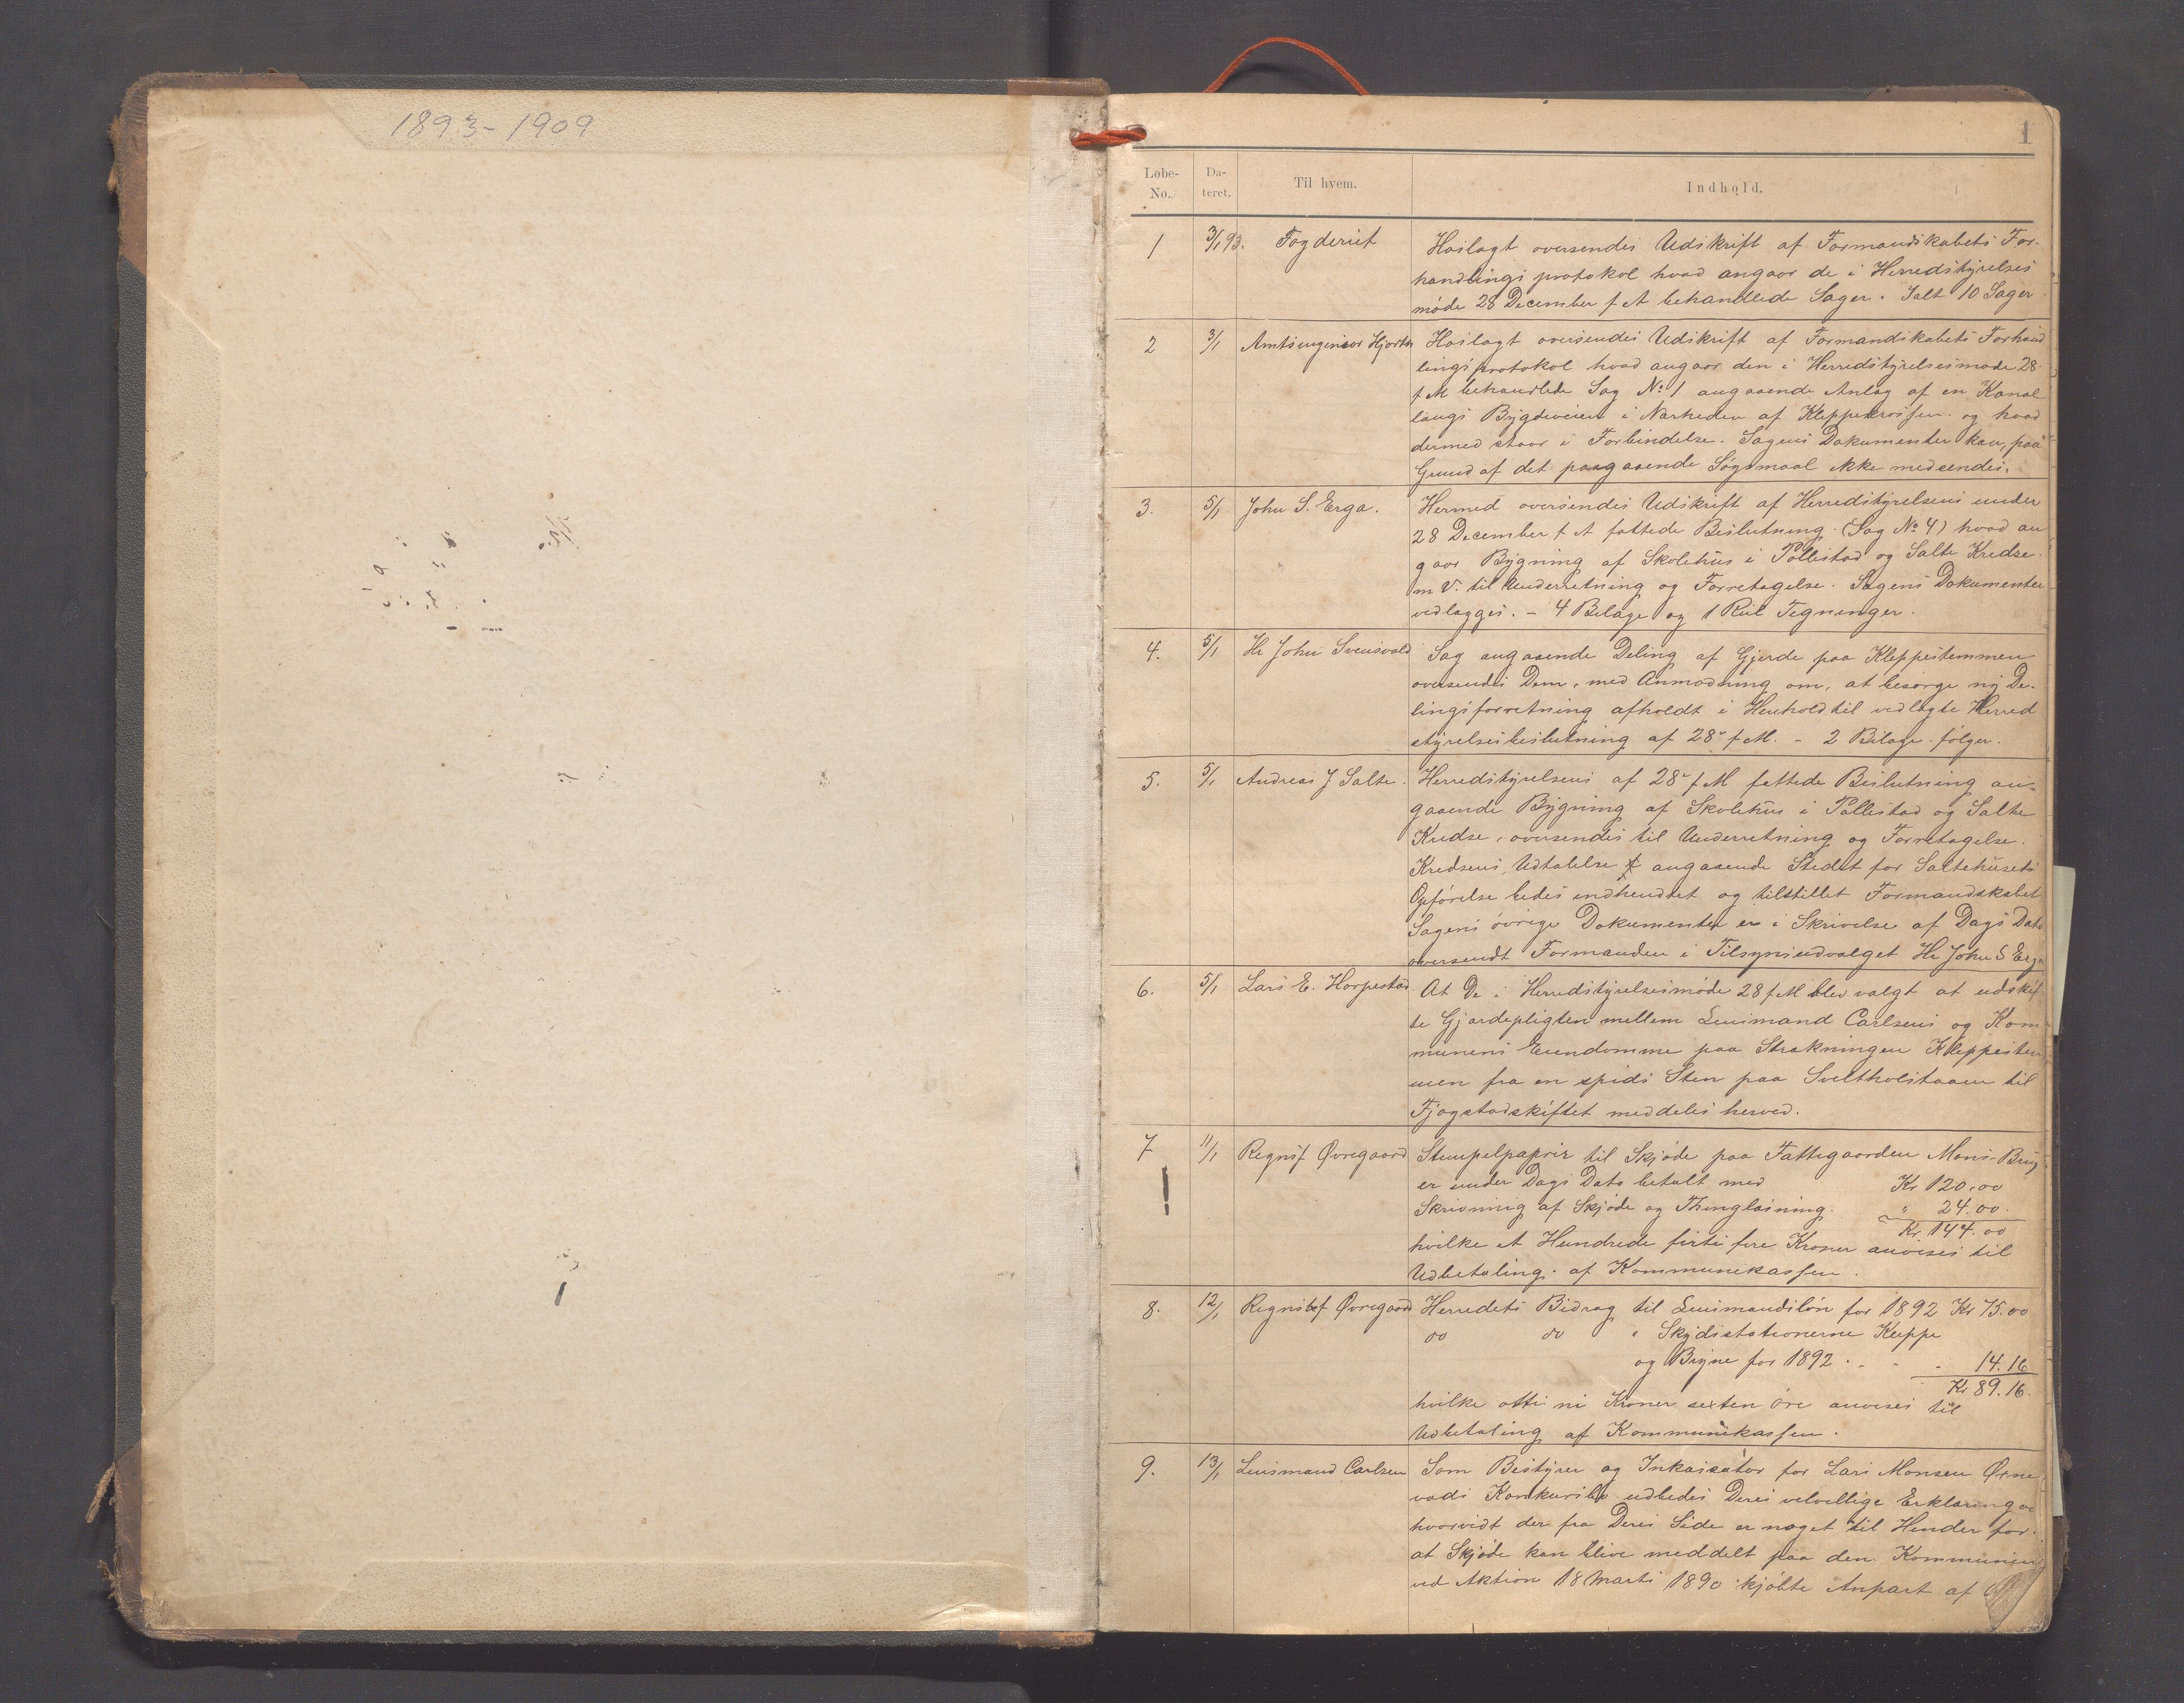 1893-1909
1
Løbe-No. Da-teret. Til hvem. Indhold.
1 3/1 93. Fogderiet Hoslagt oversendes Udskrift af Formandskabets For-
handlings protokol hvad angaar de i Herredstyrelses
møde 28 December f A behandlede Sager. Ialt 10 Sager
2 3/1 Amtsingeniør Hjorth Hoslagt oversendes Udskrift af Formandskabets Forhand
lingsprotokol hvad angaar den i Herredstyrelsesmøde 28
f M behandlede Sag No 1 angaaende Anlæg af en Kanal
langs Bygdeveien i Nærheden af Kleppekrossen og hvad
dermed staar i Forbindelse. Sagens Dokumenter kan, paa
Grund af det paagaaende Søgsmaal ikke medsendes.
3. 5/1 John S. Erga. Hermed oversendes Udskrift af Herredstyrelsens under
28 December f A fattede Beslutning (Sag No 4) hvad an
gaar Bygning af Skolehus i Pollestad og Salte Kredse
m V. til Underretning og Forretagelse. Sagens Dokumenter
vedlægges. - 4 Bilage og 1 Rul Tegninger.
4. 5/1 Hr John Svensvold Sag angaaende Deling af Gjerde paa Kleppestemmen
oversendes Dem, med Anmodning om, at besørge ny De-
lingsforretning afholdt i Henhold til vedlagte Herred
styrelsesbeslutning af 28 f M. - 2 Bilage følger.
5. 5/1 Andreas J Salte. Herredstyrelsens af 28 f M fattede Beslutning an-
gaaende Bygning af Skolehus i Pollestad og Salte
Kredse, oversendes til Underretning og Forretagelse.
Kredsens Udtalelse angaaende Stedet for Saltehusets
Opførelse bedes indhendtet og tilstillet Formandskabet
Sagens øvrige Dokumenter er i Skrivelse af Dags Dato
oversendt Formanden i Tilsynsudvalget Hr John S Erga
6. 5/1 Lars E. Horpestad At De i Herredstyrelsesmøde 28 f M blev valgt at udskif
te Gjærdepligten mellem Lensmand Carlsens og Kom
munens Eiendomme paa Strækningen Kleppestem
men fra en spids Sten paa til
Fjogstadskiftet meddeles herved.
7 11/1 Regnsf Øvregaard Stempelpapir til Skjøde paa Fattegaarden
er under Dags Dato betalt med Kr 120.00
Skrivning af Skjøde og Thinglæsning. " 24.00
Kr 144.00
hvilke et Hundrede firti fire Kroner anvises til
Udbetaling af Kommunekassen.
8. 12/1 Regnsbf Øvregaard Herredets Bidrag til Lensmandsløn for 1892 Kr 75.00
do do " Skydsstationerne Kleppe
og Bryne for 1892 . - - - 14.16
Kr 89.16.
hvilke otti ni Kroner sexten øre anvises til
Udbetaling af Kommunekassen.
9. 13/1 Lensmand Carlsen Som Bestyrer og Inkassator for Lars Monsen
Konkursbo udbedes Deres velvillige Erklæring om
hvorvidt der fra Deres Side er noget til Hinder for
at Skjøde kan blive meddelt paa den Kommunen
ved Aktion 18 Marts 1890 kjøbte Anpart af